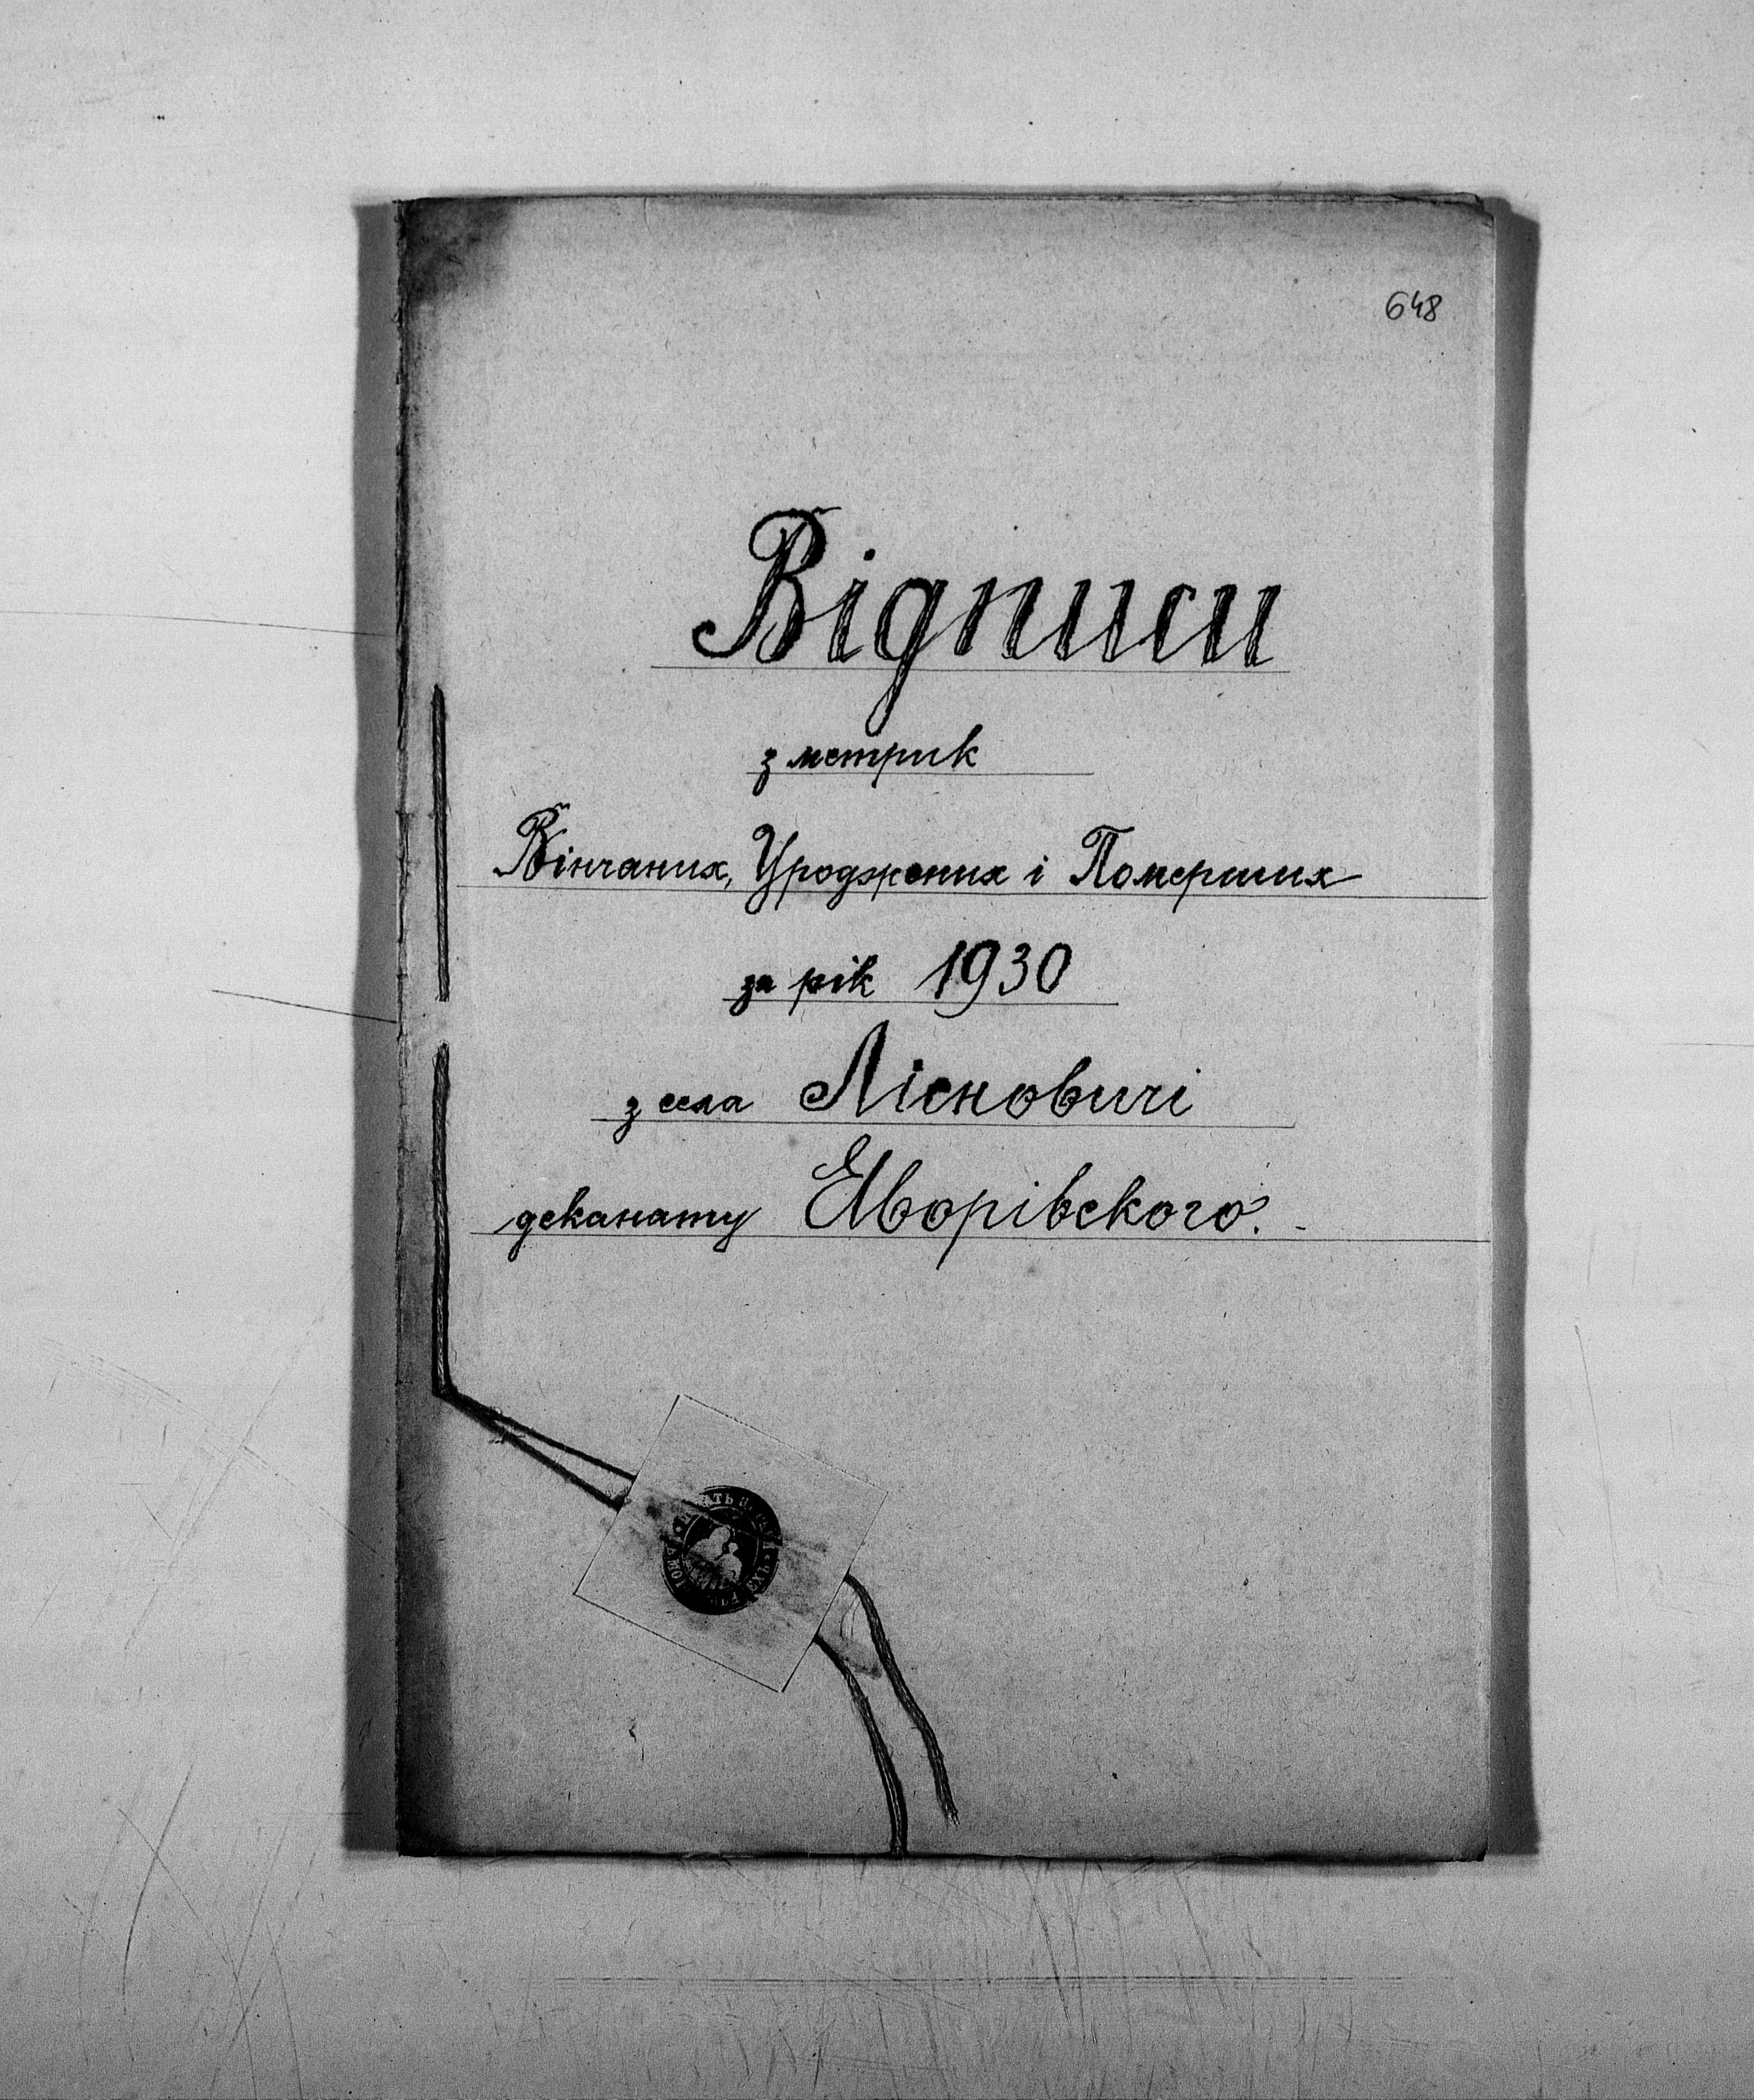 648
Відписи
з метрик
Вінчаних, Уроджених і Померших
за рік 1930
з села Лісновичі
деканату Яворівского.